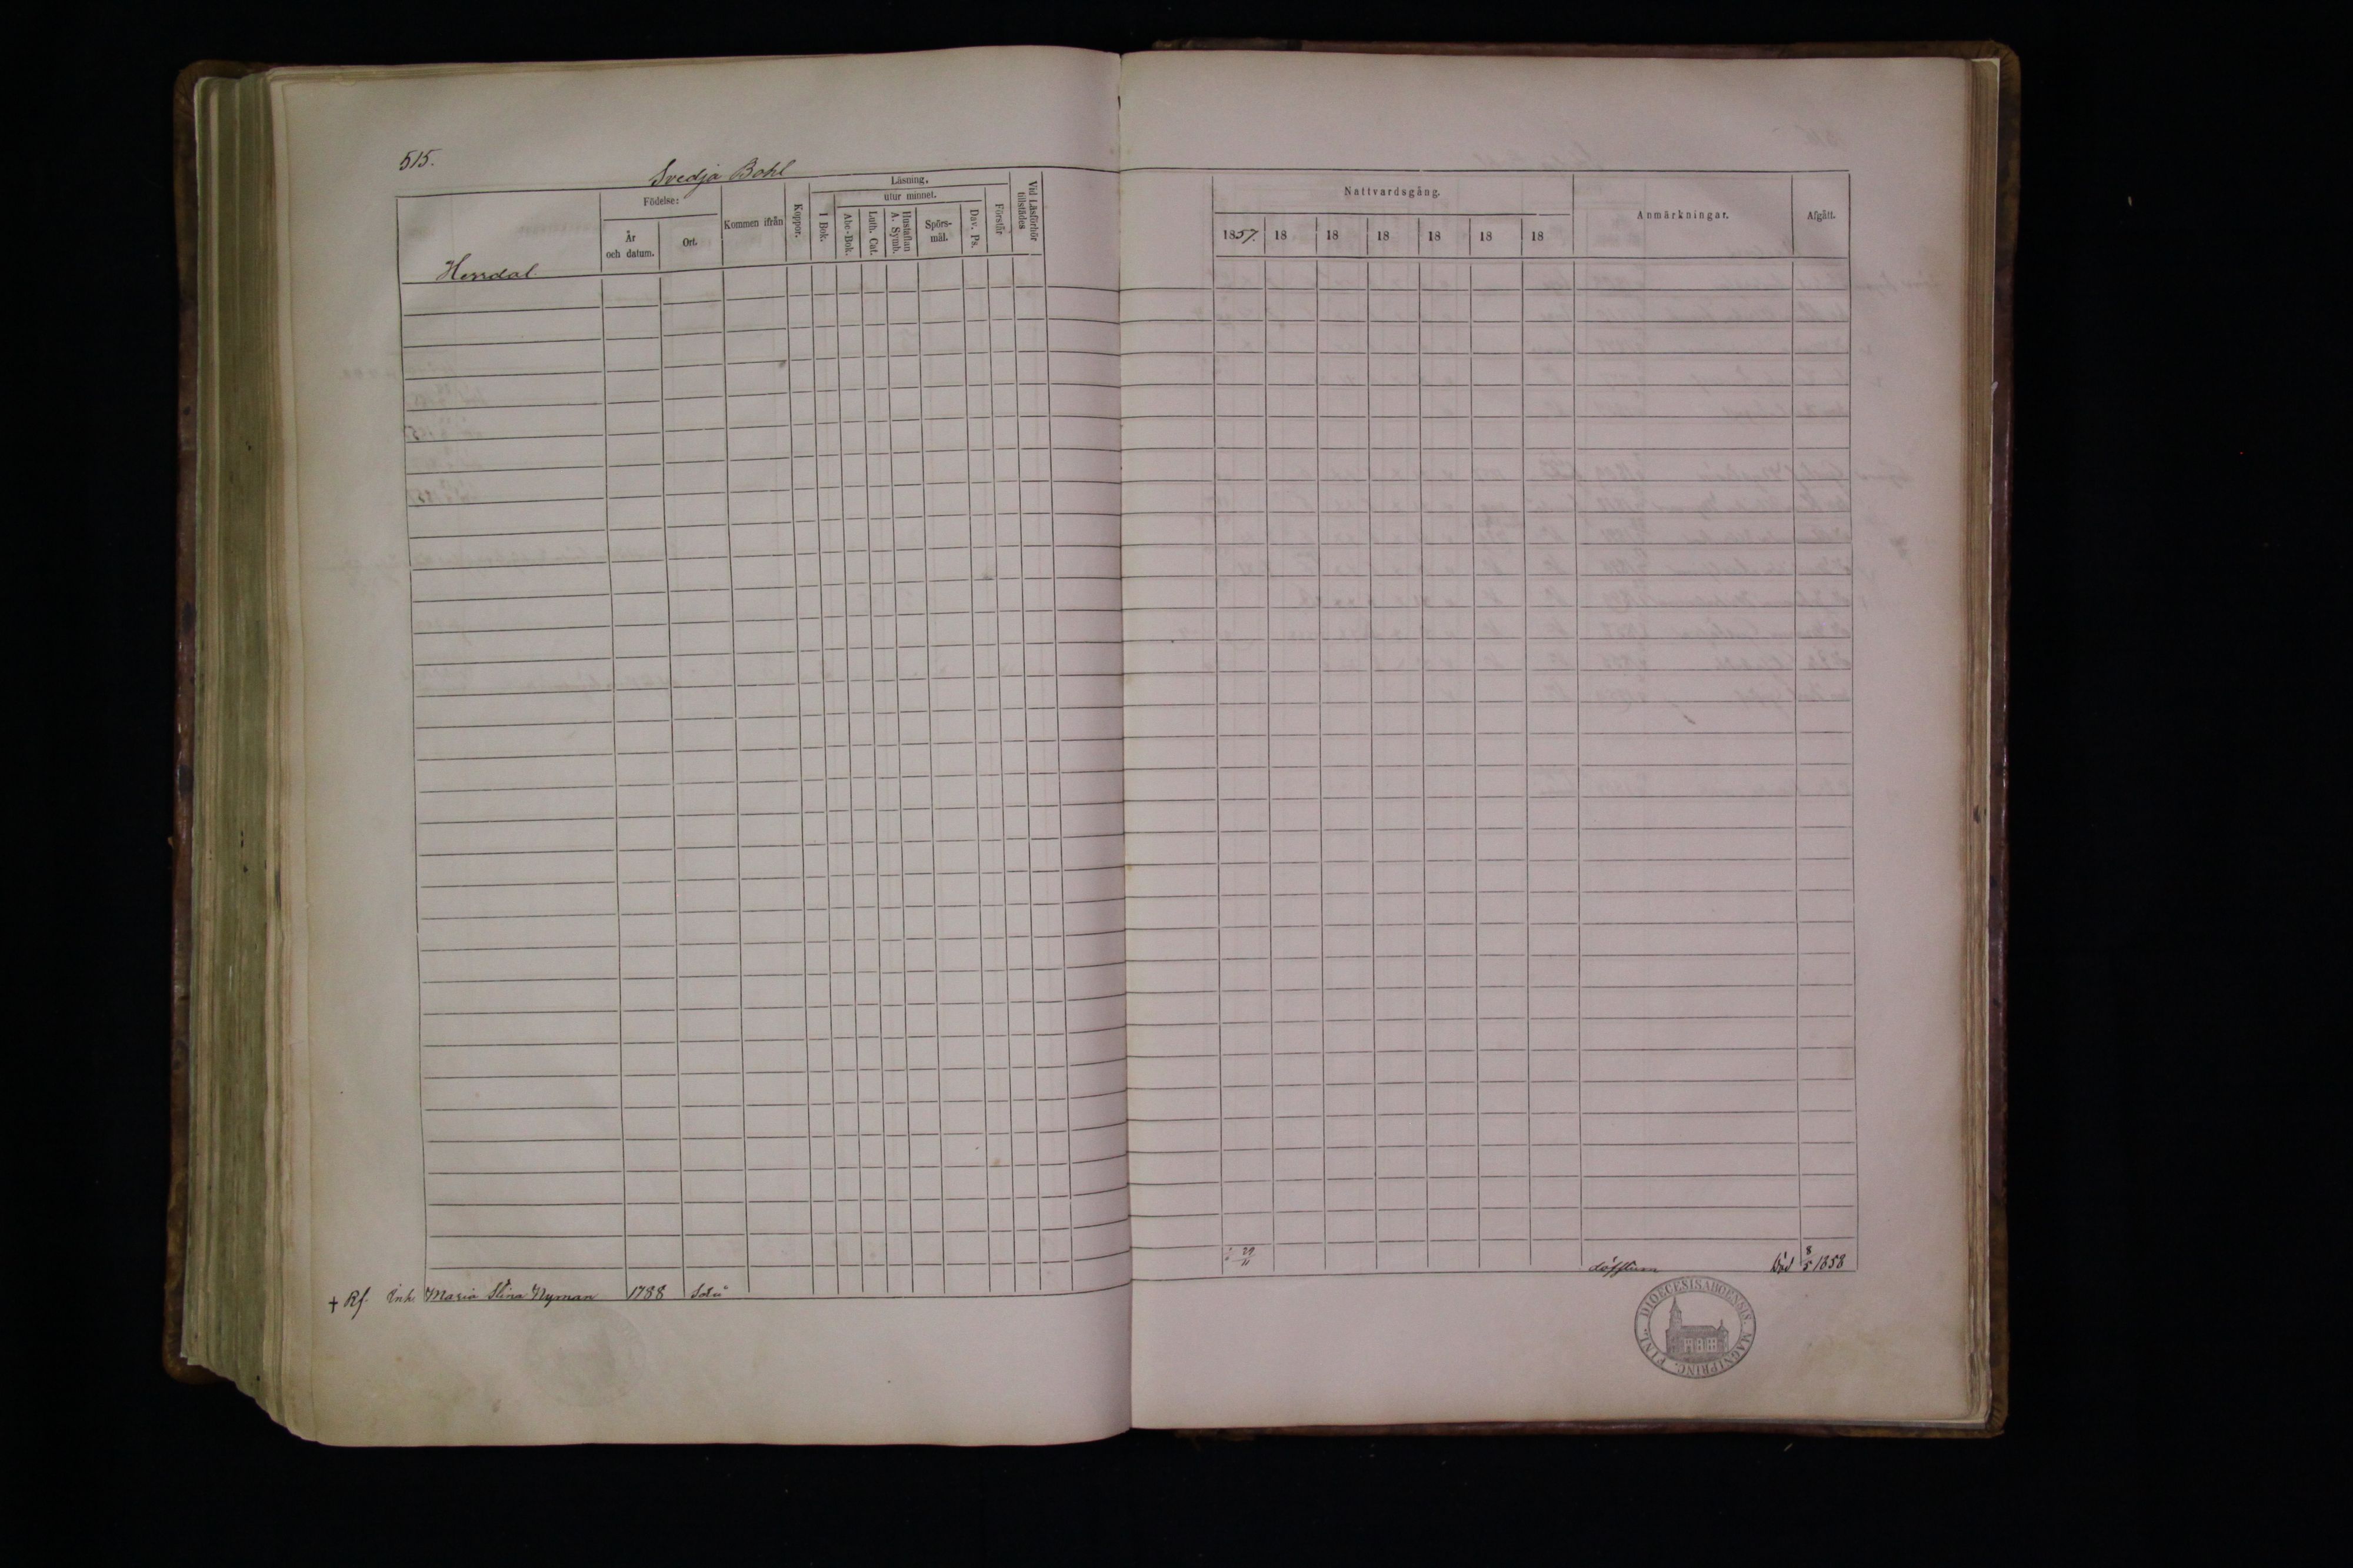 515.
Svedja Bohl
Födelse:
År och datum.
Ort.
Kommen ifrån
Koppor.
Läsning.
I Bok.
utur minnet.
Abc-Bok.
Luth. Cat.
Hustaflan A. Symb.
Spörs-mål.
Dav. Ps.
Förstår
Vid Läsförhör tillstädes
Herrdal
† Rf. Inh. Maria Stina Nyman 1788
Nattvardsgång.
1857. 18 18 18 18 18 18
Anmärkningar.
Afgått.
29/11
döfstum död 8/5 1858
DIOECESIS ABOENSIS. MAGNI PRINC. FINL.